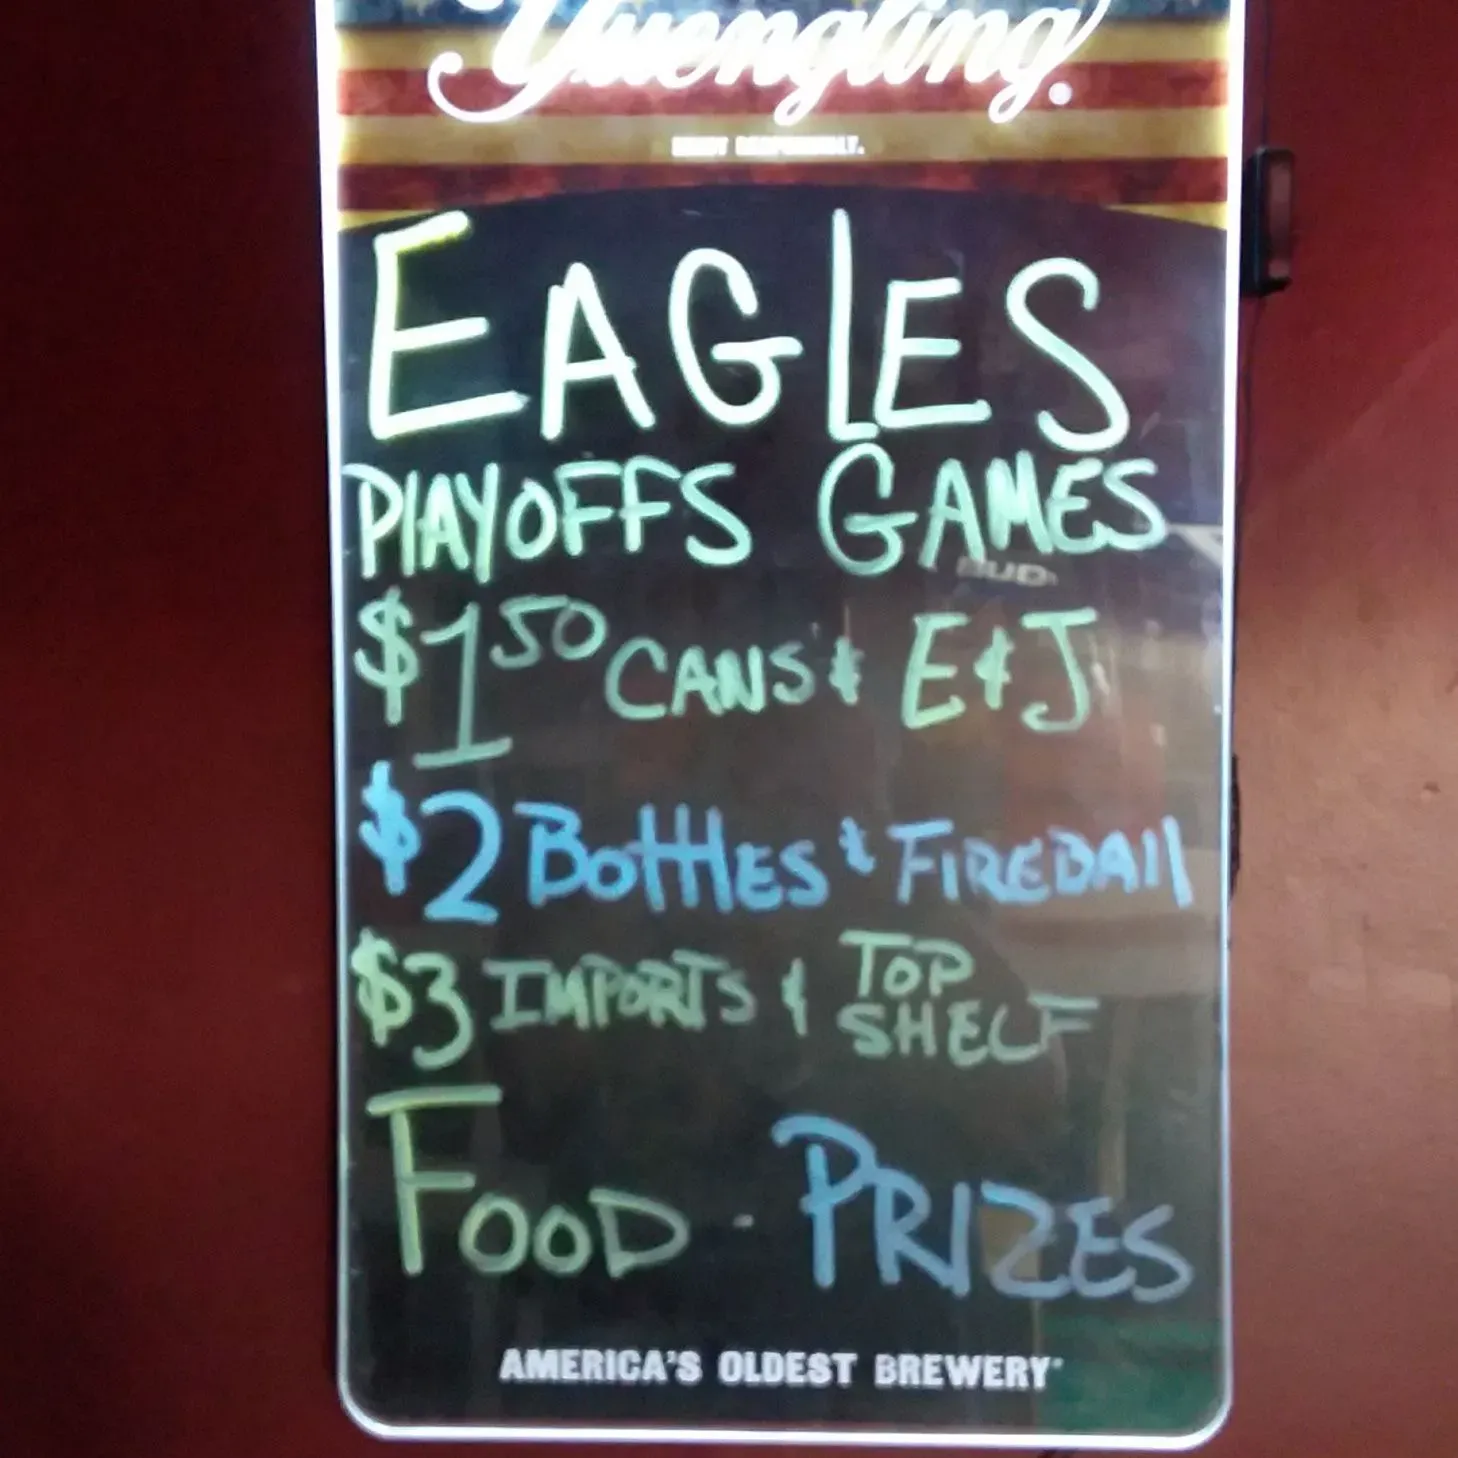 Yuengling®
EAGLES
PLAYOFFS GAMES
BUD
$1.50 CANS & E & J
$2 BOTTLES & FIREBALL
$3 IMPORTS & TOP SHELF
FOOD - PRIZES
AMERICA'S OLDEST BREWERY